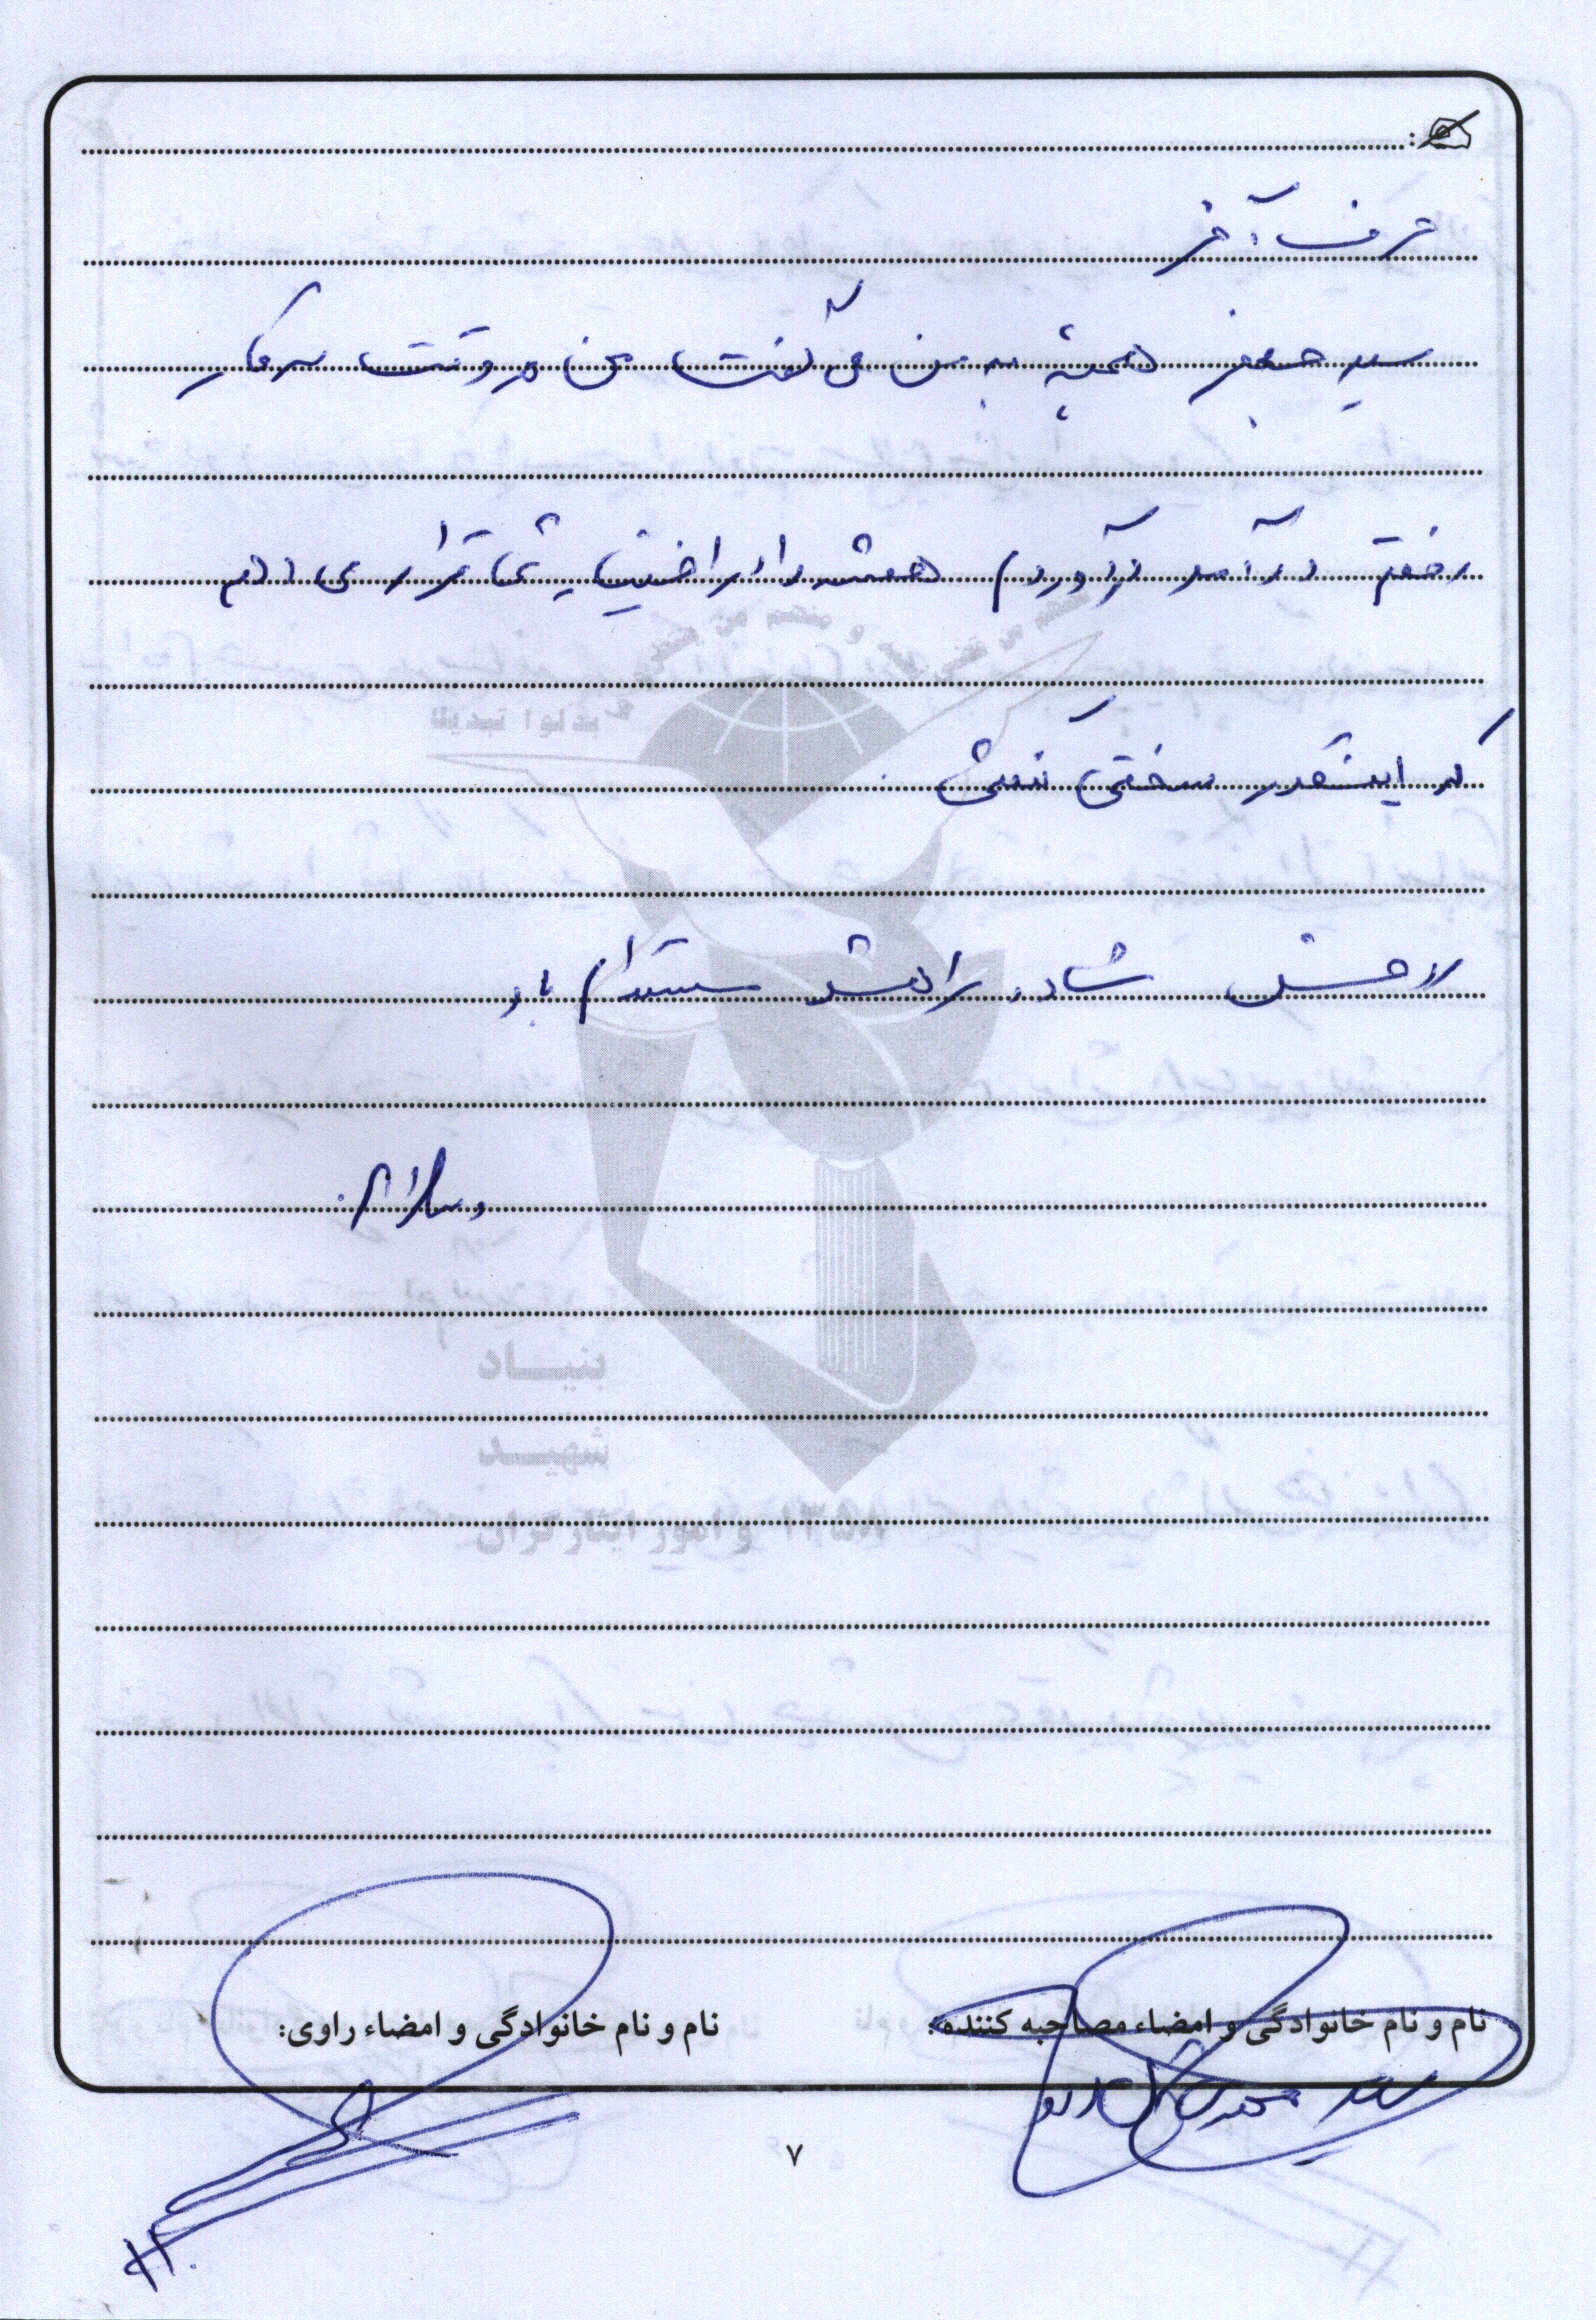 حرف آخر
سید جعفر همیشه به من می گفت من هر وقت سر کار
رفتم درآمد در آوردم همشه را در اختیار شما قرار می دهم
که اینقدر سختی نکشی.
روحش شاد و راهش مستدام باد
والسلام.
بنیاد
شهید
و امور ایثارگران ۱۳۵۸
نام و نام خانوادگی و امضاء مصاحبه کننده:
نام و نام خانوادگی و امضاء راوی:
۷